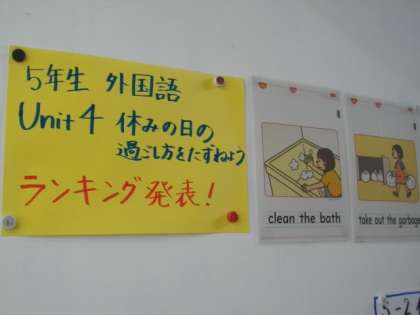 5年生 外国語
Unit 4 休みの日の
過ごし方をたずねよう
ランキング発表!
clean the bath
take out the garbage